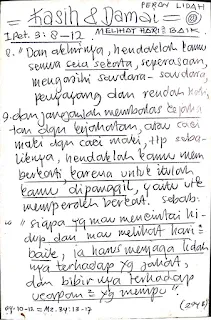 PERAN LIDAH
Kasih & Damai =
I Pet. 3:8-12 MELIHAT HARI2 BAIK
8. "Dan akhirnya, hendaklah kamu
semua seia sekata, seperasaan,
mengasihi saudara-saudara,
penyayang dan rendah hati,
9. dan janganlah membalas kejaha-
tan dgn kejahatan, atau caci
maki dgn caci maki, ttp seba-
liknya, hendaklah kamu mem
berkati karena untuk itulah
kamu dipanggil, yaitu utk
memperoleh berkat. Sebab:
10 "Siapa yg mau mencintai hi-
dup dan mau melihat hari2
baik, ia harus menjaga lidah
nya terhadap yg jahat,
dan bibirnya terhadap
ucapan2 yg menipu"
09.10-12 = Mz. 34:13-17